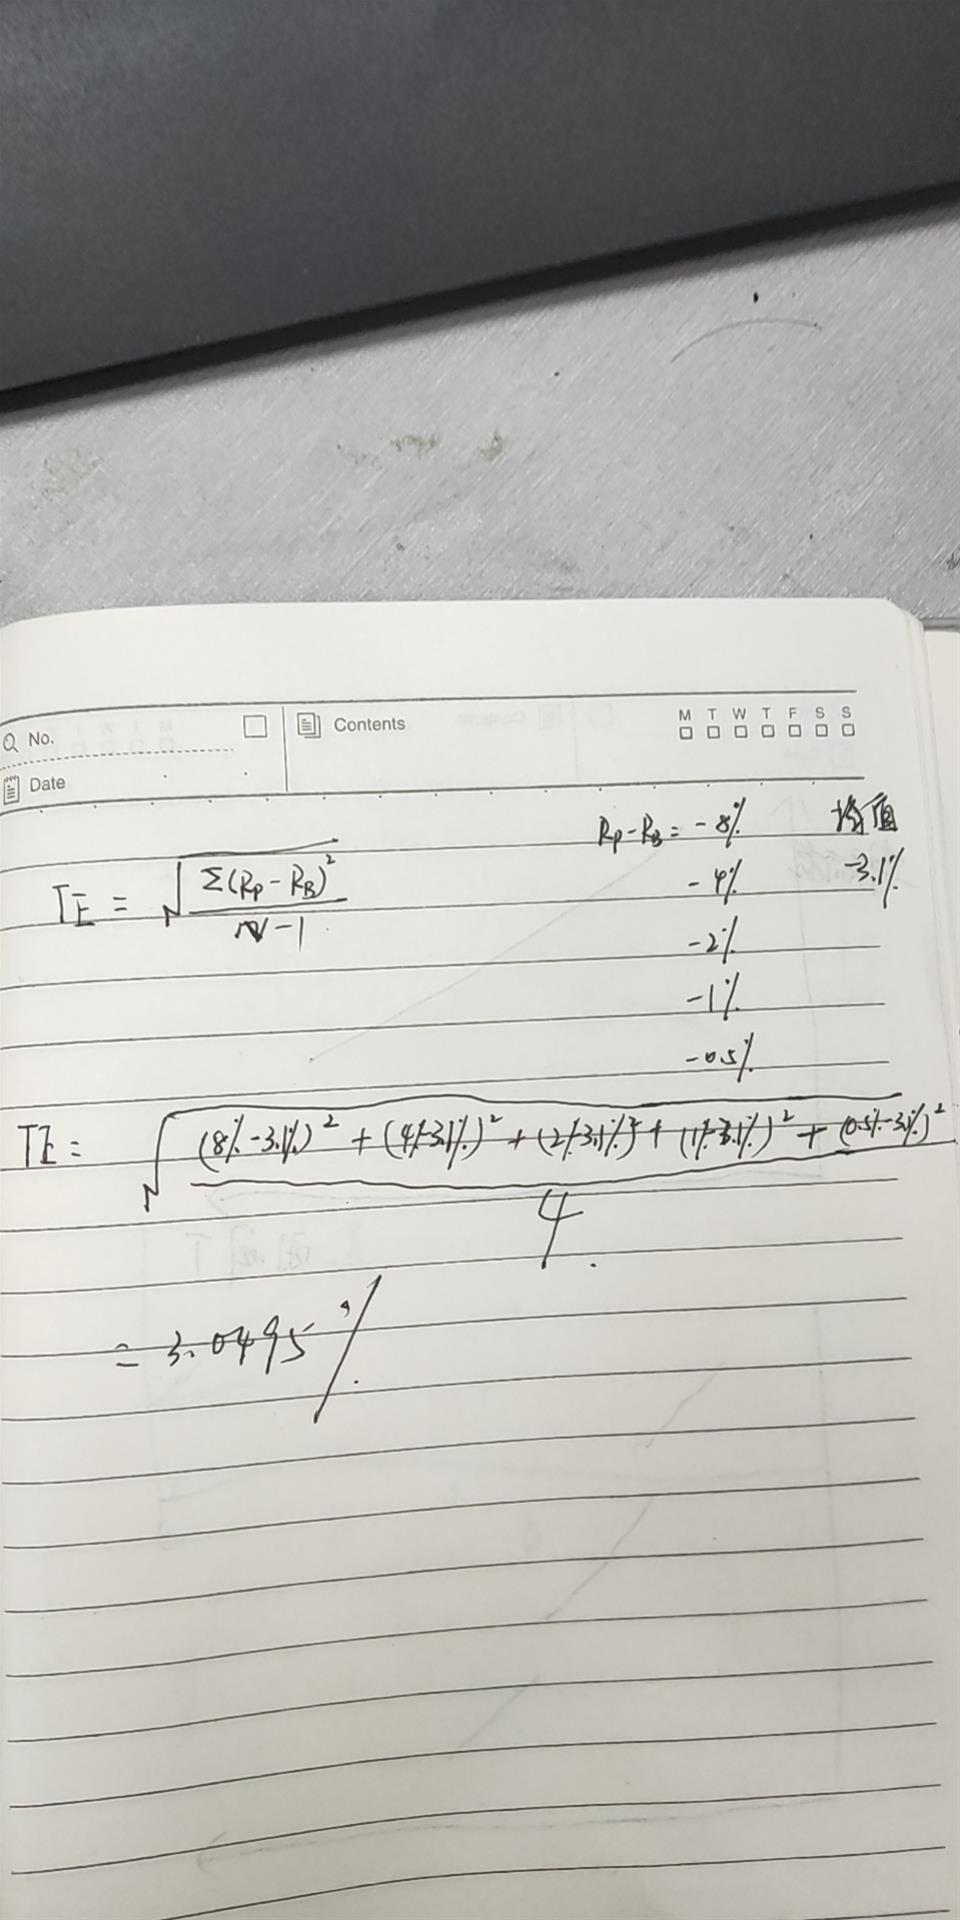 No.
Contents
M T W T F S S
Date
Rp-RB = -8% 均值
TE = √(Σ(Rp-RB)²/(N-1))
-4% -3.1%
-2%
-1%
-0.5%
TE = √(((8%-3.1%)² + (4%-3.1%)² + (2%-3.1%)² + (1%-3.1%)² + (0.5%-3.1%)²)/4)
= 3.0495%